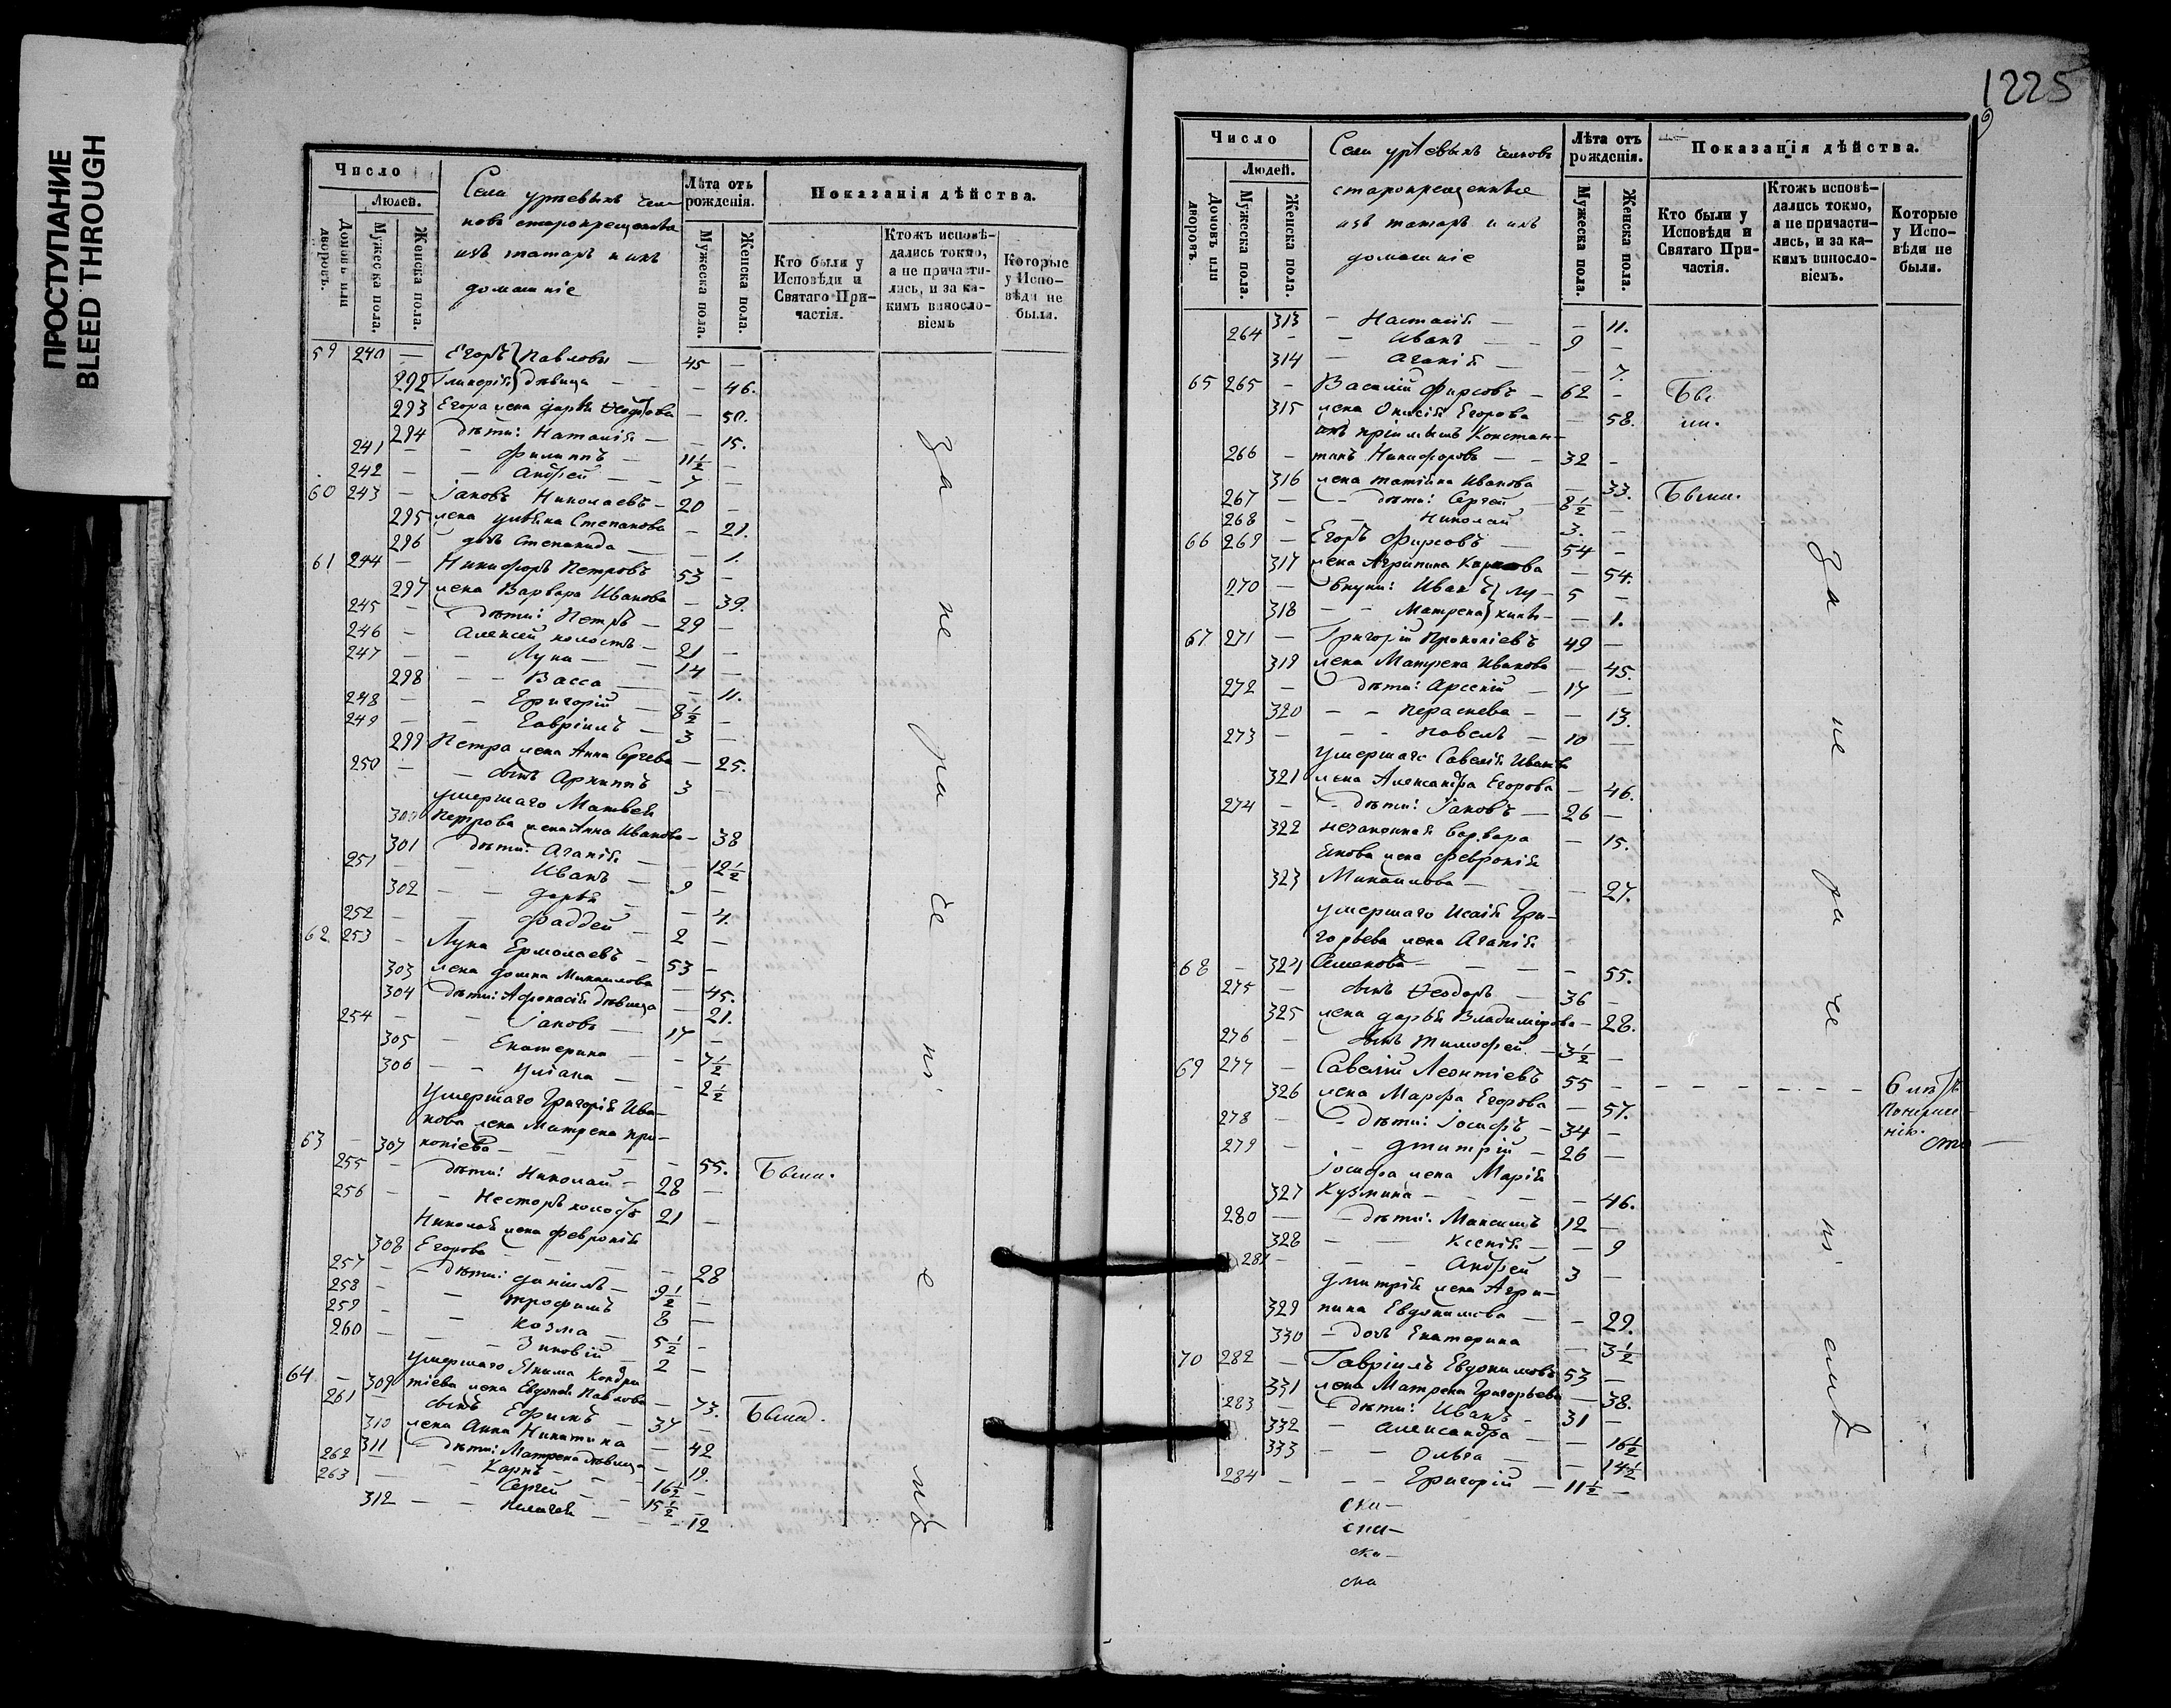 ПРОСТУПАНИЕ
BLEED THROUGH
Число
Людей.
Домовъ или дворовъ.
Мужеска пола.
Женска пола.
Села
старокрещеныя
изъ татаръ и ихъ
домашніе
Лѣта отъ рожденія.
Мужеска пола.
Женска пола.
Показанія дѣйства.
Кто были у Исповѣди и Святаго Причастія.
Ктожъ исповѣдались токмо, а не причастились, и за какимъ винословіемъ
Которые у Исповѣди не были.
59 240 — Егоръ } Павловы — 45 —
292 Гликерія } дѣвица — — 46.
293 Егора жена Дарья Ѳеодорова — 50.
294 дѣти: Наталія — — 15.
241 — — Филиппъ — 11½ —
242 — — Андрей — — 7 —
60 243 — Іаковъ Николаевъ — 20 —
295 жена Ульяна Степанова — 21.
296 дочь Степанида — — 1.
61 244 — Никифоръ Петровъ 53 —
297 жена Варвара Иванова — 39.
245 — дѣти: Петръ — 29 —
246 — Алексей холостъ — 21 —
247 — — Лука — — 14 —
298 — — Васса — — 11.
248 — — Григорій — 8½ —
249 — — Гавріилъ — 3 —
299 Петра жена Анна Сергѣева — 25.
250 — — сынъ Архиппъ 3 —
умершаго Матвея
300 Петрова жена Анна Иванова — 38
301 дѣти: Агапія — — 12½
251 — Иванъ — 9 —
302 — — Дарья — — 4.
252 — — Фаддей — 2 —
62. 253 — Лука Ермолаевъ — 53 —
303 жена Домна Михаилова — 45.
304 дѣти: Афонасія дѣвица — 21.
254 — — Іаковъ — 17 —
305 — Екатерина — — 7½
306 — — Уліана — — 2½
Умершаго Григорія Ива-
нова жена Матрена Про-
63 — 307 копіева — — — — 55. Были.
255 — дѣти: Николай — 28 —
256 — — Несторъ холостъ 21 —
Николая жена Февронія
308 Егорова — — — — 28
257 — — дѣти: Даніилъ — 9½ —
258 — — Трофимъ 8 —
259 — — Козма — 5½ —
260 — — Зиновій — 2 —
умершаго Якима Кондра
64. — 309 тіева жена Евдокія Павлова — 73. Были.
261 — сынъ Ефимъ — 37 —
310 жена Анна Никитина — 42
311 дѣти: Матрена дѣвица — 19.
262 — — Карпъ — — 16½ —
263 — — Сергей — — 15½ —
312 — — Пелагея — — — 12
за не ра че ні е мъ
1225
Число
Людей.
Домовъ или дворовъ.
Мужеска пола.
Женска пола.
Села
старокрещенные
изъ татаръ и ихъ
домашніе
Лѣта отъ рожденія.
Мужеска пола.
Женска пола.
Показанія дѣйства.
Кто были у Исповѣди и Святаго Причастія.
Ктожъ исповѣдались токмо, а не причастились, и за какимъ винословіемъ.
Которые у Исповѣди не были.
313 — Настасія — — 11.
264 — — Иванъ — — 9 —
314 — Агапія — — 7.
65 265 — Василій Фирсовъ — 62 — Бы
315 жена Анисія Егорова — 58. ли.
ихъ пріимышъ Констан-
266 — тинъ Никифоровъ — — 32 —
316 жена Татіана Иванова — 33. Были.
267 — — дѣти: Сергей — 8½ —
268 — — Николай 3. —
66 269 — Егоръ Фирсовъ — 54 —
317 жена Агрипина Карпова — 54.
270 — внуки: Иванъ } Лу- 5 —
318 — — Матрена } кины — — 1.
67 271 — Григорій Прокопіевъ 49 —
319 жена Матрена Иванова — 45.
272 — дѣти: Арсеній — 17 —
320 — — Пераскева — — 13.
273 — — — Павелъ — 10 —
Умершаго Савелія Иванова
321 жена Александра Егорова — 46.
274 — — дѣти: Іаковъ — 26 —
322 незаконная Варвара — 15.
Якова жена Февронія
323 Михаилова — — — 27.
умершаго Исаія Гри-
горьева жена Агапія
68 — 324 Семенова — — — — 55.
275 — сынъ Ѳеодоръ — 36 —
325 жена Дарья Владимірова — 28.
276 — сынъ Тимофей — 3½ —
69 277 — Савелій Леонтіевъ 55 — — — — — — 6 лѣтъ
326 жена Марфа Егорова — 57.
278 — — дѣти: Іосифъ — 34 —
279 — — Дмитрій — 26 —
Іосифа жена Марія
327 Кузмина — — — — 46.
280 — — дѣти: Максимъ 12 —
328 — — Ксенія — — 9
281 — — — Андрей 3 —
Дмитрія жена Агри-
329 пина Евдокимова — — 29.
330 — дочь Екатерина — 3½
70 282 — Гавріилъ Евдокимовъ 53 —
331 жена Матрена Григорьева — 38.
283 — дѣти: Иванъ — 31 —
332 — Александра — — 16½
333 — — Ольга — — 14½
284 — — — Григорій — 11½ —
за не ра че ні емъ